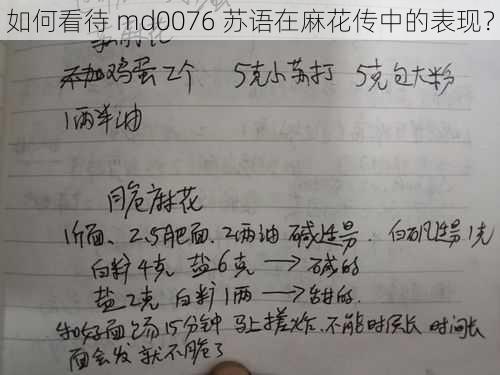 如何看待 md0076 苏语在麻花传中的表现？
不加鸡蛋2个 5克小苏打 5克包大粉
1两半油
脆麻花
1斤面、2.5肥面、2两油 碱适量. 白矾适量1克
白料4克 盐6克 → 碱的
盐2克 白料1两 → 甜的.
和好面饧15分钟 马上搓炸.不能时间长 时间长
面会发 就不脆了